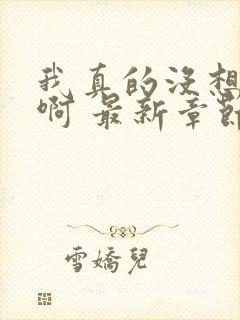 我真的没想
啊 最新章節
雪嬌兒